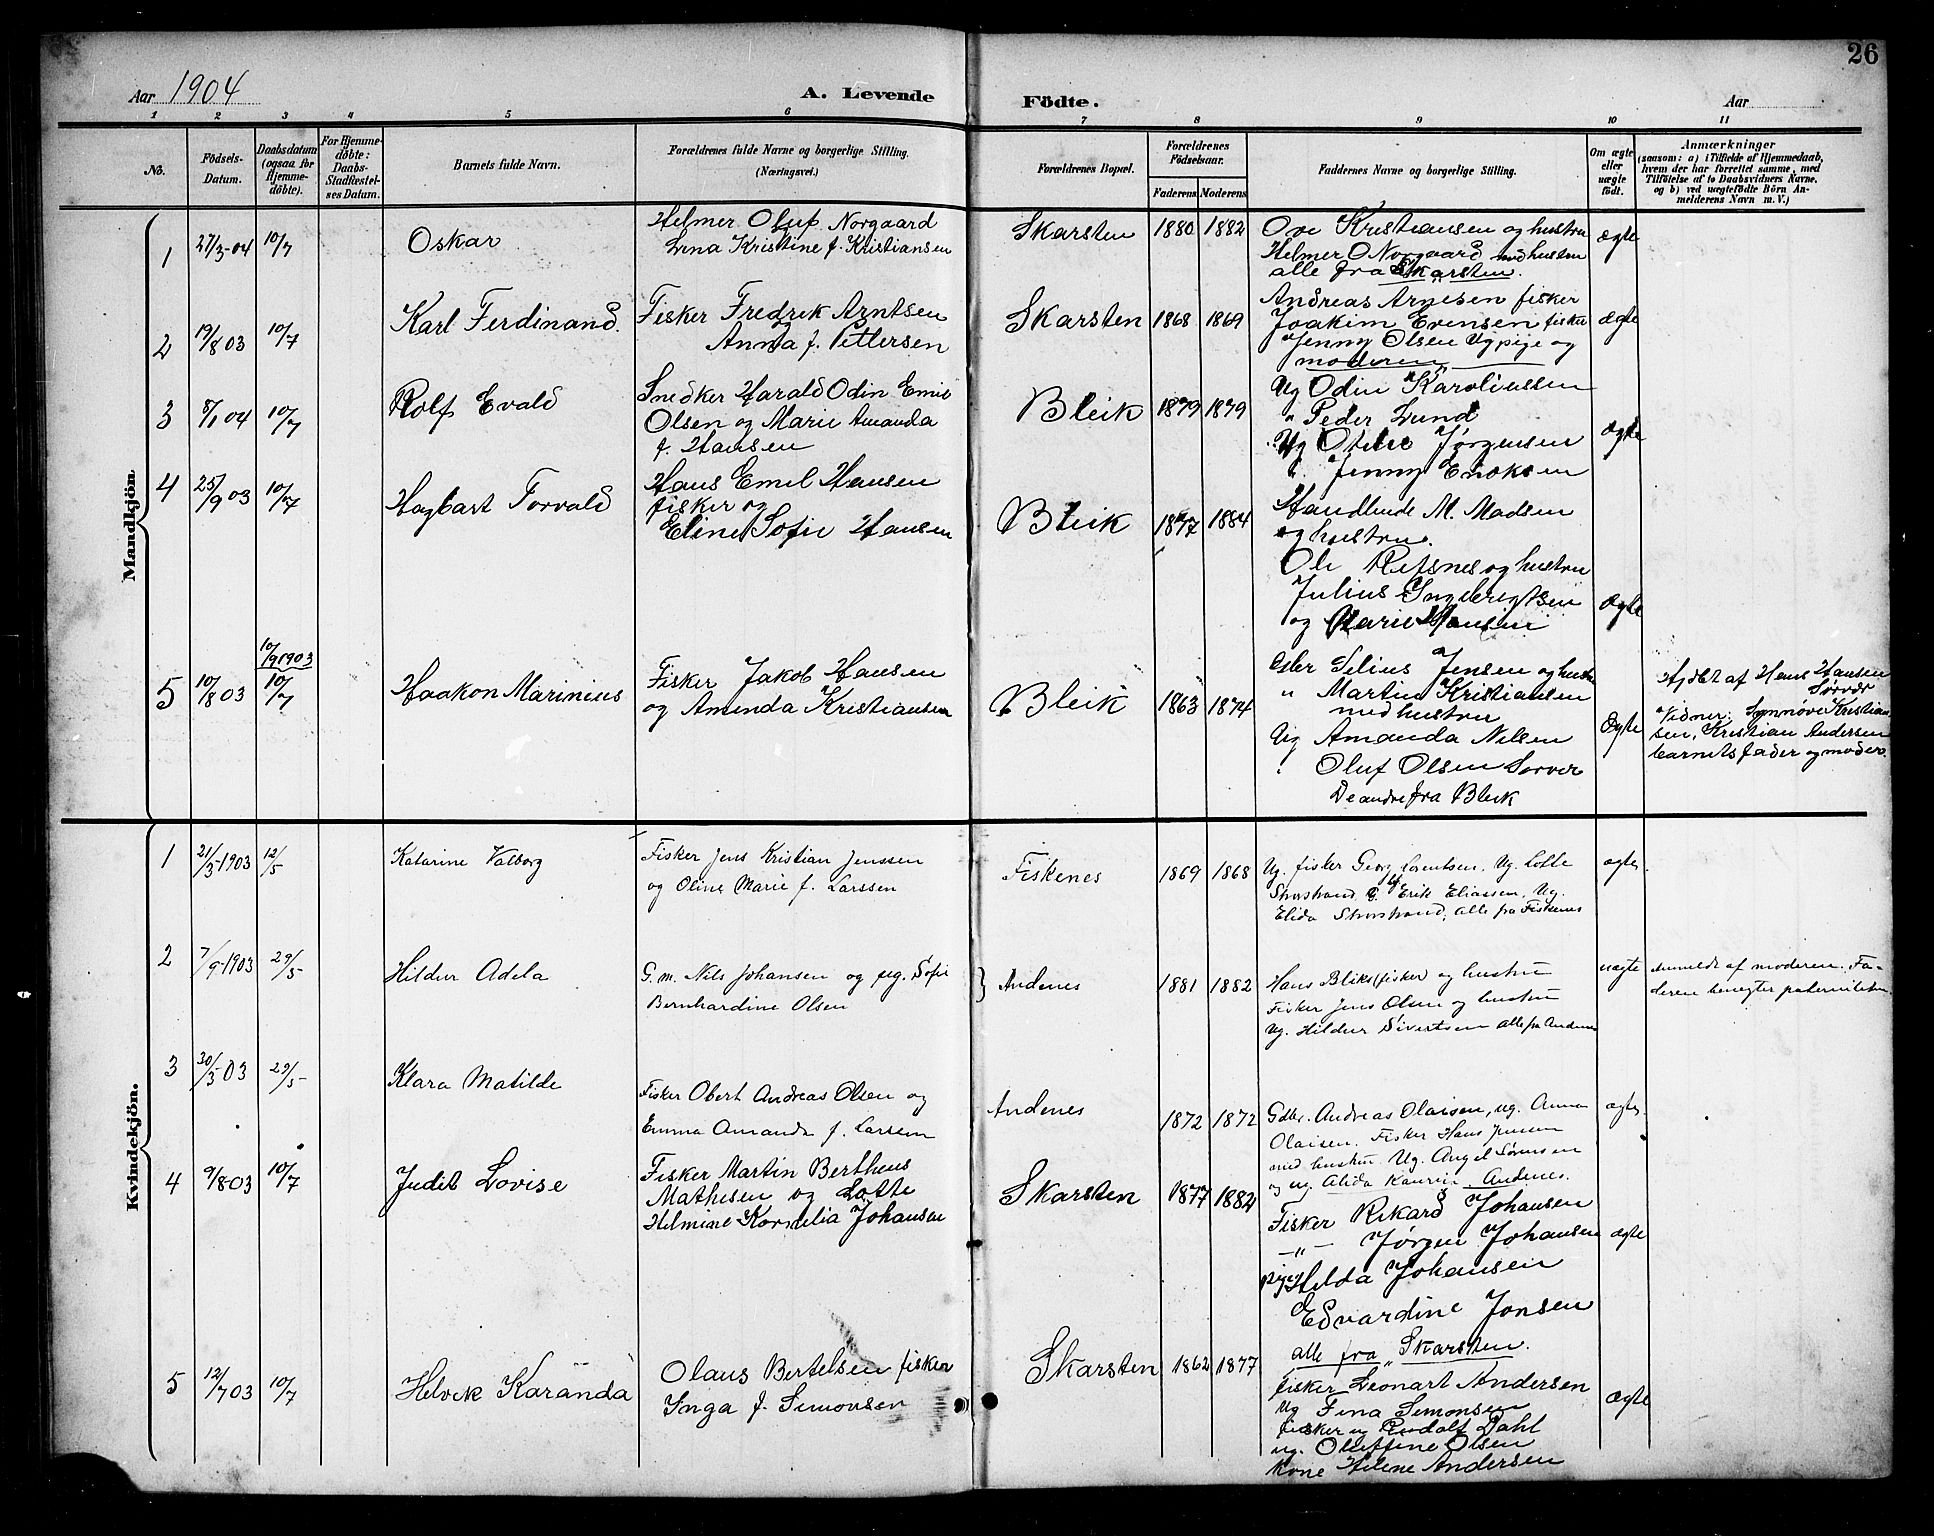 26
Aar 1904
A. Levende Födte.
Aar
1 2 3 4 5 6 7 8 9 10 11
No.
Födsels-Datum.
Daabsdatum (ogsaa for Hjemme-döbte).
For Hjemme-döbte: Daabs-Stadfæstel-ses Datum.
Barnets fulde Navn.
Forældrenes fulde Navne og borgerlige Stilling. (Næringsvei.)
Forældrenes Bopæl.
Forældrenes Födselsaar.
Faderens Moderens
Faddernes Navne og borgerlige Stilling.
Om ægte eller uægte født.
Anmærkninger
(saasom: a) i Tilfælde af Hjemmedaab, hvem der har forrettet samme, med Tilföielse af to Daabsvidners Navne, og b) ved uægtefödte Börn An-melderens Navn m. V.)
Mandkjön
1 27/3-04 10/7 Oskar
Helmer Oluf Norgaard
Lena Kristine f. Kristiansen
Skarsten 1880 1882
Ove Kristiansen og hustru
Helmer O Norgaard med hustru
alle fra Skarsten.
ægte
2 19/8 03 10/7 Karl Ferdinand.
Fisker Fredrik Arntsen
Anna f. Pettersen
Skarsten 1868 1869
Andreas Arnesen fisker
Joakim Evensen fisker
Jenny Olsen Ug pige og
moderen
ægte
3 8/1 04 10/7 Rolf Evald
Snedker Harald Odin Emil
Olsen og Marie Amanda
f. Hansen
Bleik 1879 1879
Ug Odin Karoliussen
" Peder Lund
Ug Otelie Jørgensen
" Jenny Enoksen
ægte
4 25/9 03 10/7 Hagbart Torvald
Hans Emil Hansen
fisker og
Eline Sofie Hansen
Bleik 1877 1884
Handlende M. Madsen
og hustru.
Ole Refsnes og hustru
Julius Ingebrigtsen
og Marie Hansen
ægte
5 10/8 03 10/9 1903 10/7 Haakon Marinius
Fisker Jakob Hansen
og Amanda Kristiansen
Bleik 1863 1874
Gbr Selius Jensen og hustru
" Martin Kristiansen
med hustru
Ug Amanda Nilsen
" Oluf Olsen Sorver
De andre fra Bleik
Ægte
Hjdbt af Hans Hansen
Sørvær
Vidner: Synnøve Kristian-
sen, Kristian Andersen
barnets fader og moder.
Kvindekjön.
1 21/3-1903 12/5 Katarine Valborg
Fisker Jens Kristian Jenssen
og Oline Marie f. Larssen
Fiskenes 1869 1868
Ug. fisker Georg Lorentsen, Ug. Lotte
Storstrand, G. Erik Eliassen, Ug.
Elida Storstrand, alle fra Fiskenes
ægte.
2 7/9-1903 29/5- Hildur Adela
G. m. Nils Johansen og pig. Sofie
Bernhardine Olsen
Andenes 1881 1882
Hans Bliks (fisker og hustru
Fisker Jens Olsen og hustru
Ug. Hildur Sivertsen alle fra Andenes
uægte
Anmeldt af moderen. Fa-
deren benegter paterniteten.
3 30/3 03 29/5- Klara Matilde
Fisker Obert Andreas Olsen og
Emma Amanda f. Larssen
Andenes 1872 1872
Gdbr. Andreas Olaisen, ug. Anna
Olaisen. Fisker Hans Jensen
med hustru. Ug. Angel Sørensen
og ug. Alida Kaurin Andenes.
ægte.
4 9/8 03 10/7 Judit Lovise
Fisker Martin Bertheus
Mathisen og Lotte
Helmine Kornelia Johansen
Skarsten 1877 1882
Fisker Rikard Johansen
-"- Jørgen Johansen
pige Hilda Johansen
Edvardine Jonsen
alle fra Skarsten.
ægte
5 12/7 03 10/7 Helvik Karanda
Olaus Bertelsen fisker
Inga f. Simonsen
Skarsten 1862 1877
fisker Leonart Andersen
Ug Fina Simonsen
fisker ug Rudolf Dahl
ug. Oluffine Olsen
Kone Helene Andersen
ægte